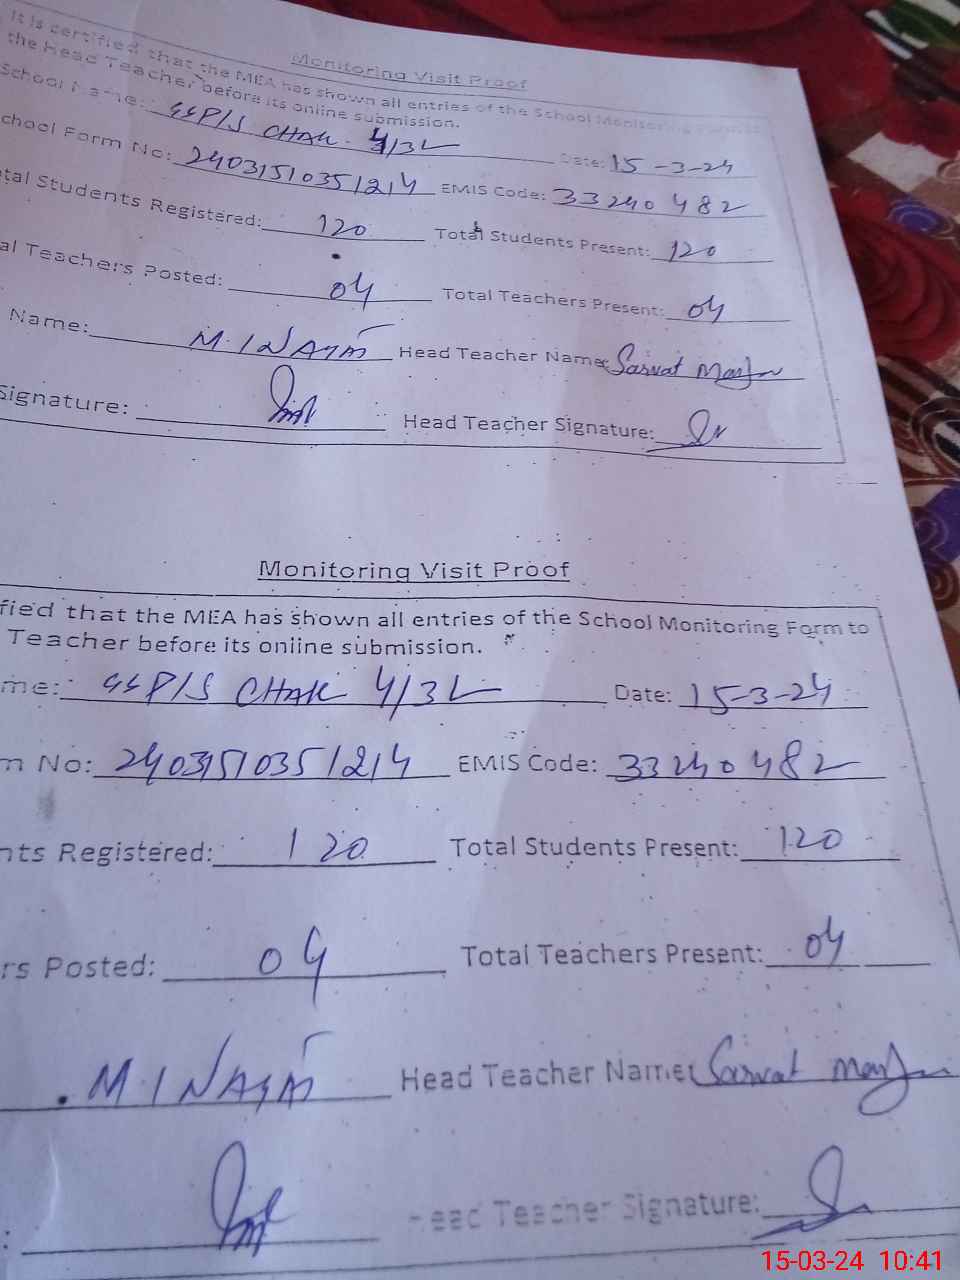 Monitoring Visit Proof
It is certified that the MEA has shown all entries of the School Monitoring Form to
the Head Teacher before its online submission.
School Name: GGP/S CHAK 4/3L Date: 15-3-24
chool Form No: 24031510351214 EMIS Code: 33240482
tal Students Registered: 120 Total Students Present: 120
al Teachers Posted: 04 Total Teachers Present: 04
Name: M. INAYAT Head Teacher Name: Sarwat
Signature: Head Teacher Signature:
Monitoring Visit Proof
fied that the MEA has shown all entries of the School Monitoring Form to
Teacher before its online submission.
me: GGP/S CHAK 4/3L Date: 15-3-24
m No: 24031510351214 EMIS Code: 33240482
nts Registered: 120 Total Students Present: 120
rs Posted: 04 Total Teachers Present: 04
M. INAYAT Head Teacher Name: Sarwat
: Head Teacher Signature:
15-03-24 10:41